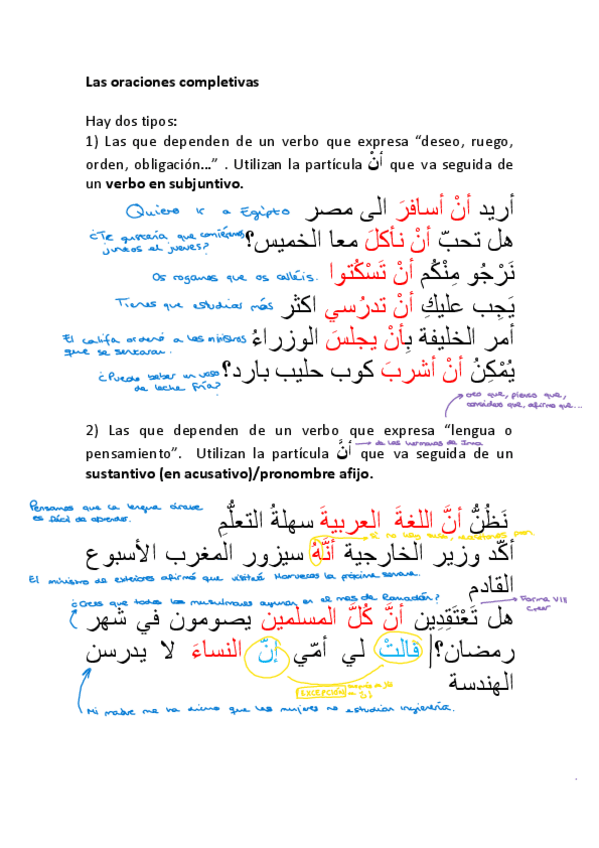 Las oraciones completivas
Hay dos tipos:
1) Las que dependen de un verbo que expresa “deseo, ruego,
orden, obligación...” . Utilizan la partícula أنْ que va seguida de
un verbo en subjuntivo.
أريد أنْ أسافرَ الى مصر
Quiero ir a Egipto
هل تحبّ أنْ نأكلَ معا الخميس؟
¿Te gustaría que comiéramos
juntos el jueves?
نَرْجُو مِنْكُم أنْ تَسْكُتوا
Os rogamos que os calléis.
يَجِب عليكِ أنْ تدرُسي اكثر
Tienes que estudiar más
أمر الخليفة بِأنْ يجلسَ الوزراءُ
El califa ordenó a los ministros
que se sentaran.
يُمْكِنُ أنْ أشربَ كوب حليب بارد؟
¿Puedo beber un vaso
de leche fría?
creo que, pienso que,
considero que, afirmo que...
2) Las que dependen de un verbo que expresa “lengua o
de las hermanas de Inna
pensamiento”. Utilizan la partícula أنَّ que va seguida de un
sustantivo (en acusativo)/pronombre afijo.
Pensamos que la lengua árabe
es fácil de aprender.
نَظُنُّ أنَّ اللغةَ العربيةَ سهلةُ التعلُّمِ
Si no hay
أكّد وزير الخارجية أنَّهُ سيزور المغرب الأسبوع
القادم
El ministro de exteriores afirmó que visitará Marruecos la próxima semana.
¿Crees que todos los musulmanes ayunan en el mes de Ramadán?
هل تَعْتَقِدِين أنَّ كُلَّ المسلمين يصومون في شهر
Forma VIII
creer
رمضان؟| قالتْ لي أمّي إنّ النساءَ لا يدرسن
الهندسة
EXCEPCIÓN
Mi madre me ha dicho que las mujeres no estudian ingeniería.